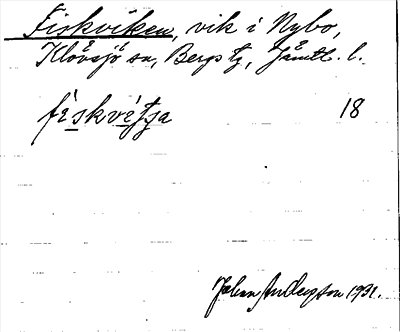 Fiskviken, vik i Nybo,
Klövsjö sn, Bergs tg, Jämtl. l.
fiskvitja 18
Johan Anderson 1931.